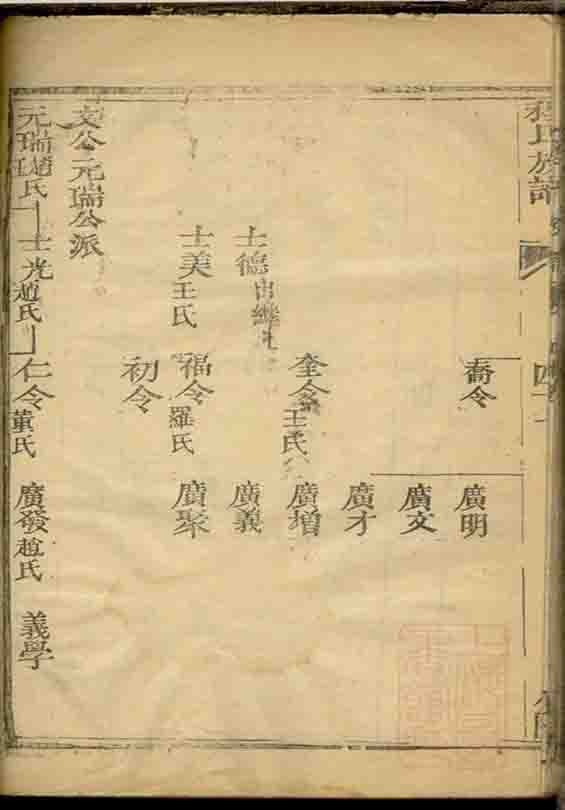 程氏族譜
四十一
喬令
廣明
廣文
廣才
奎令王氏
廣增
士德出繼
廣義
士美王氏
福令羅氏
廣聚
初令
文公元瑞公派
元瑞趙氏
士光趙氏
仁令董氏
廣發趙氏
義學